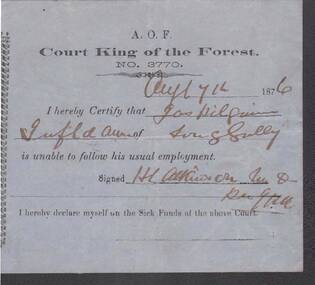 A. O. F.
Court King of the Forest.
NO. 3770.
7th 1876
I hereby Certify that Jas
of Long Gully
is unable to follow his usual employment.
Signed H L Atkinson M D
I hereby declare myself on the Sick Funds of the above Court.